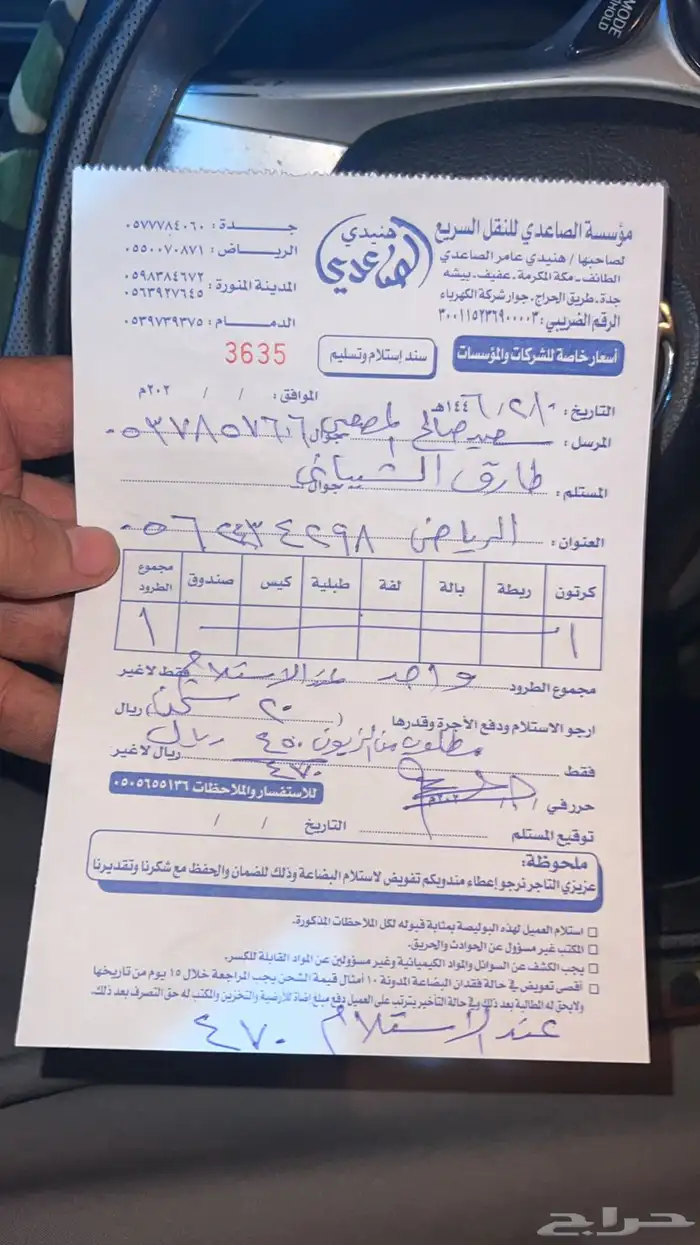 MODE
HOLD
مؤسسة الصاعدي للنقل السريع
لصاحبها / هنيدي عامر الصاعدي
الطائف - مكة المكرمة - عفيف - بيشه
جدة - طريق الحراج - جوار شركة الكهرباء
الرقم الضريبي : ٣٠٠١١٥٢٣٦٩٠٠٠٠٣
هنيدي
الصاعدي
جـــدة : ٠٥٧٧٧٨٤٠٦٠
الريـــاض : ٠٥٥٠٠٧٠٨٧١
المدينة المنورة : ٠٥٩٨٣٨٤٦٧٢
٠٥٦٣٩٢٧٦٤٥
الدمـــام : ٠٥٣٩٧٣٩٣٧٥
أسعار خاصة للشركات والمؤسسات
سند إستلام وتسليم
3635
التاريخ : / ٢ / ١٤٤٦هـ الموافق : / / ٢٠٢م
المرسل : صالح جوال ٠٥٣٧٨٥٧٦٦
المستلم : طارق الشيباني جوال
العنوان : الرياض ٤٢٩٨
كرتون ربطة بالة لفة طبلية كيس صندوق مجموع الطرود
١ ١
مجموع الطرود واحد عند الاستلام فقط لاغير
ارجو الاستلام ودفع الأجرة وقدرها ( ٢٠ شحن ) ريال
فقط مطلوب من الزبون ٤٥٠ ريال ريال لاغير
٤٧٠
حرر في ٢٠٢م
للاستفسار والملاحظات ٠٥٠٥٦٥٥١٣٦
توقيع المستلم التاريخ / /
ملحوظة :
عزيزي التاجر نرجو إعطاء مندوبكم تفويض لاستلام البضاعة وذلك للضمان والحفظ مع شكرنا وتقديرنا
استلام العميل لهذه البوليصة بمثابة قبوله لكل الملاحظات المذكورة.
المكتب غير مسؤول عن الحوادث والحريق.
يجب الكشف عن السوائل والمواد الكيميائية وغير مسؤولين عن المواد القابلة للكسر.
أقصى تعويض في حالة فقدان البضاعة المدونة ١٠ أمثال قيمة الشحن يجب المراجعة خلال ١٥ يوم من تاريخها
ولايحق له المطالبة بعد ذلك وفي حالة التأخير يترتب على العميل دفع مبلغ اضافة للأرضية والتخزين والمكتب له حق التصرف بعد ذلك.
عند الاستلام ٤٧٠
حراج